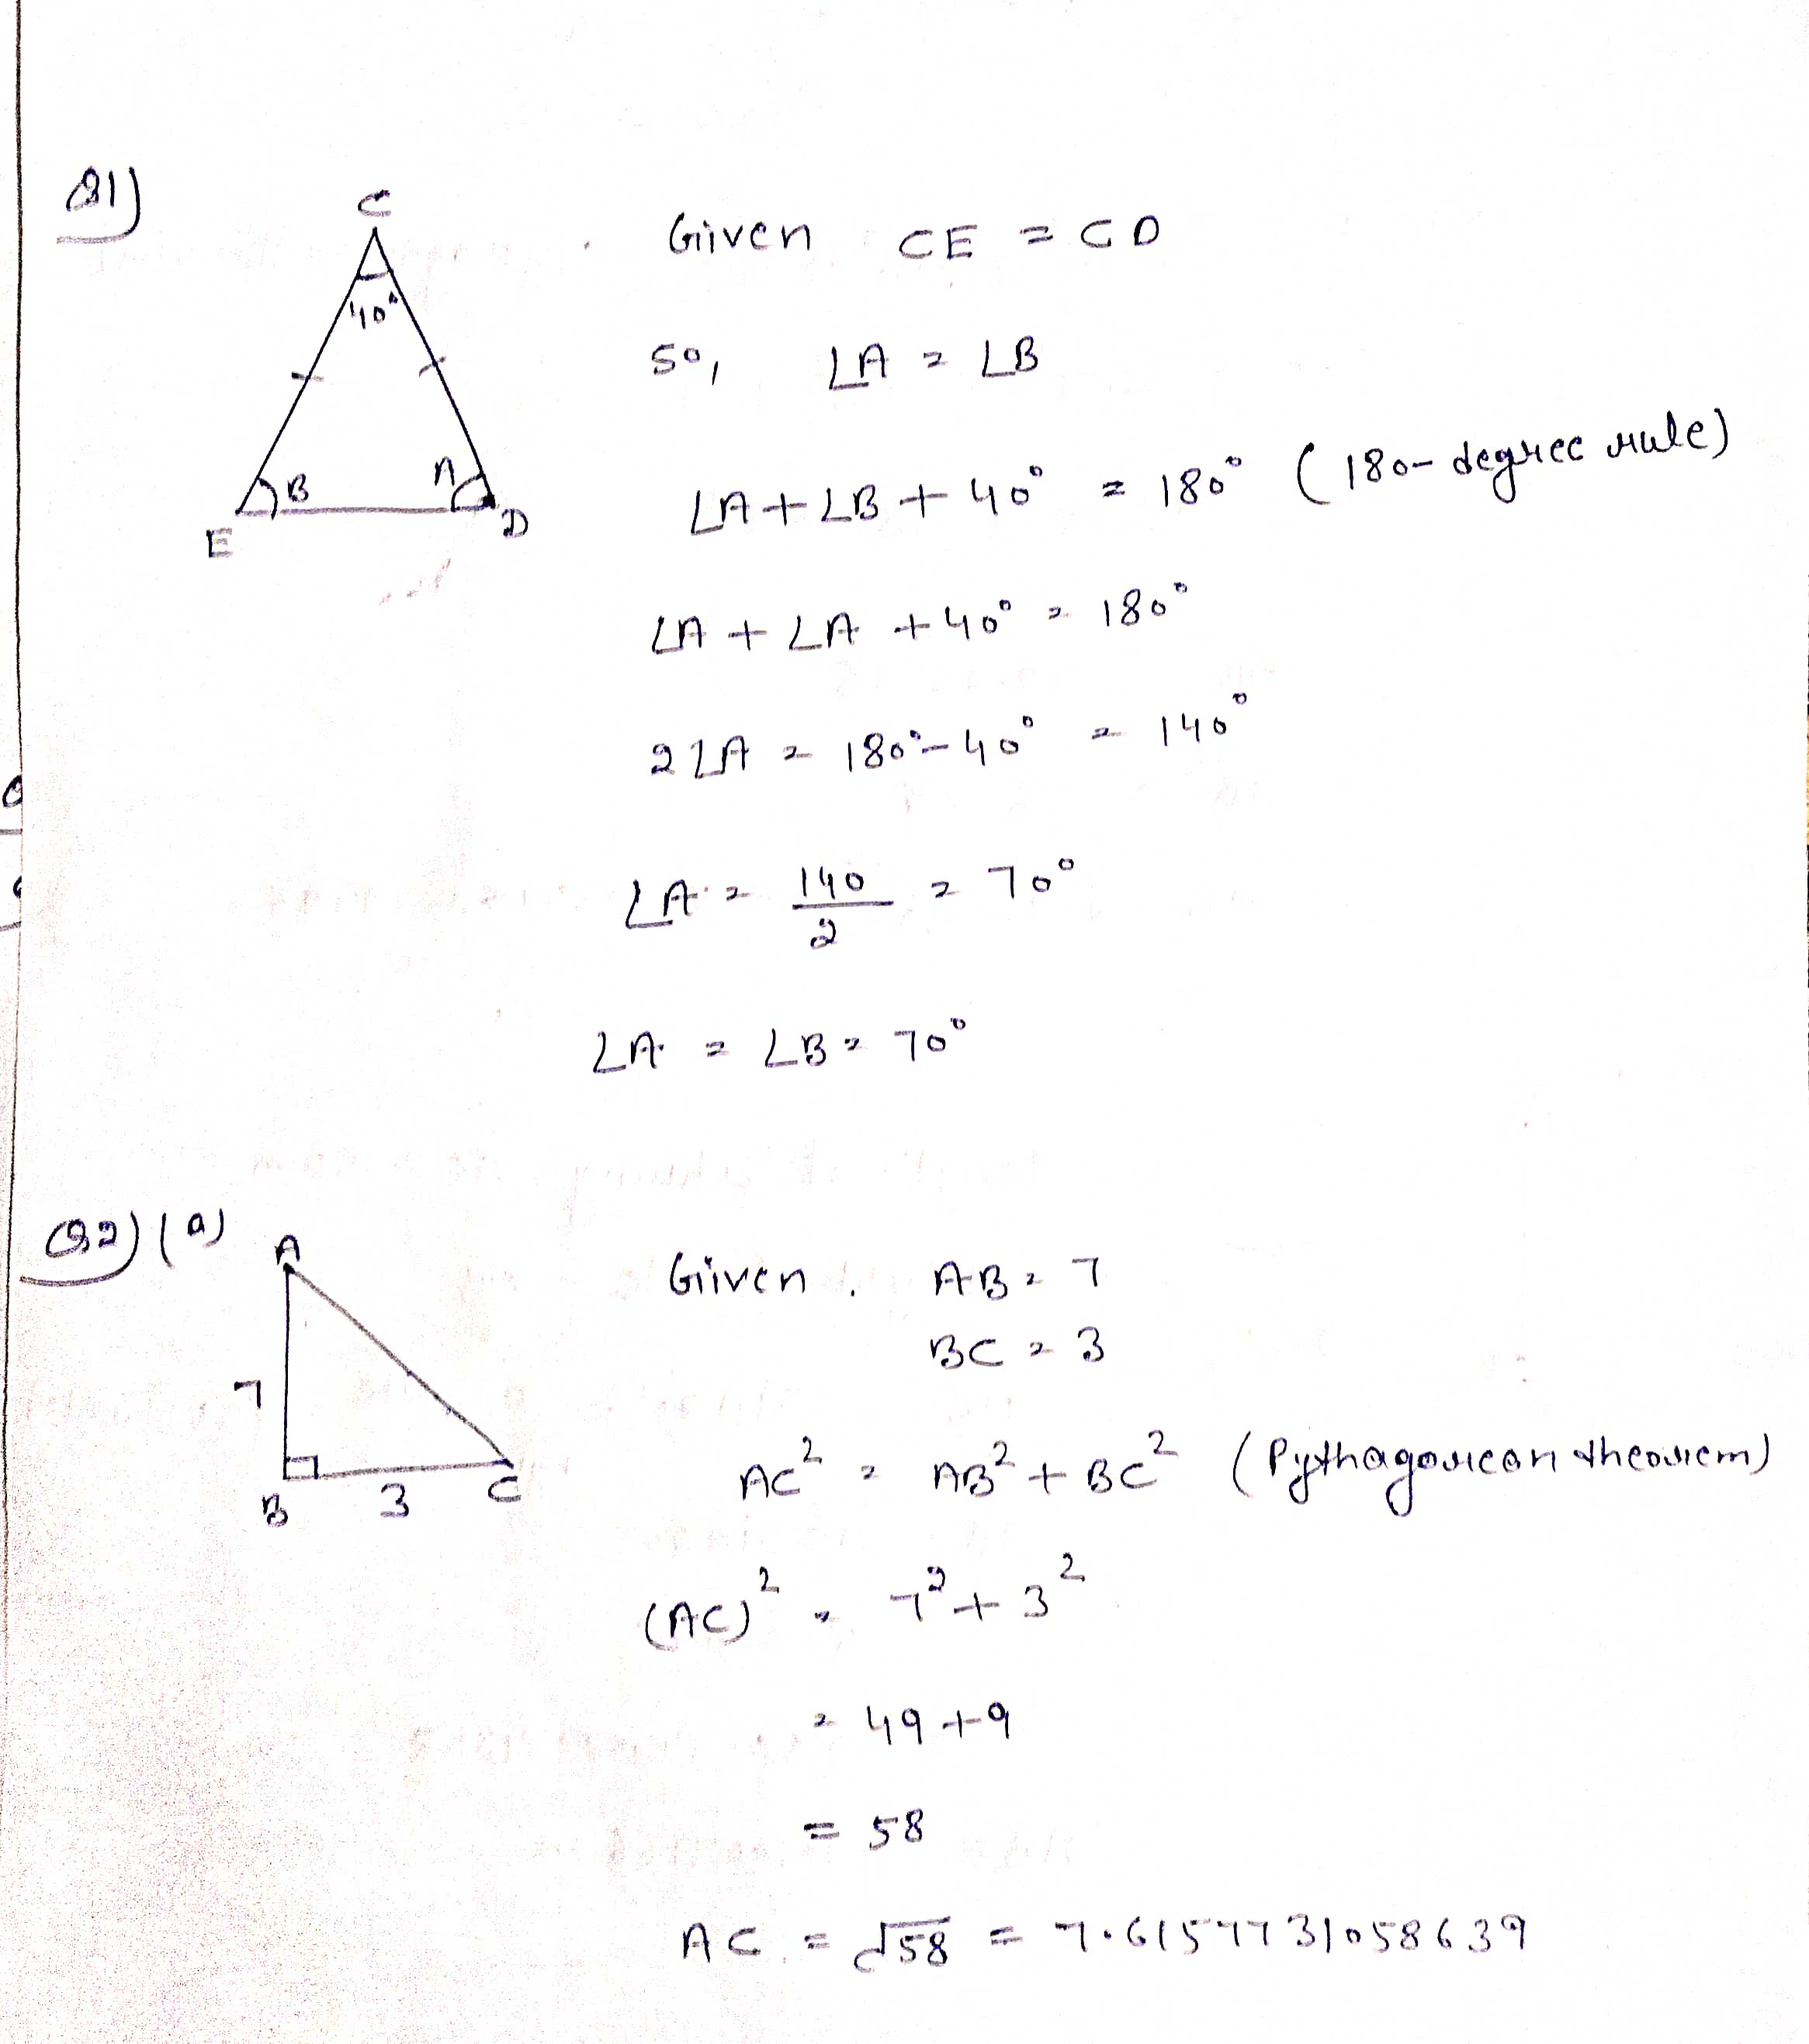 Q1)
C
40°
B
A
E
D
Given CE = CD
So, ∠A = ∠B
∠A + ∠B + 40° = 180° (180-degree rule)
∠A + ∠A + 40° = 180°
2∠A = 180° - 40° = 140°
∠A = 140/2 = 70°
∠A = ∠B = 70°
Q2) (a)
A
7
B
3
C
Given. AB = 7
BC = 3
AC² = AB² + BC² (Pythagorean theorem)
(AC)² = 7² + 3²
= 49 + 9
= 58
AC = √58 = 7.61577731058639